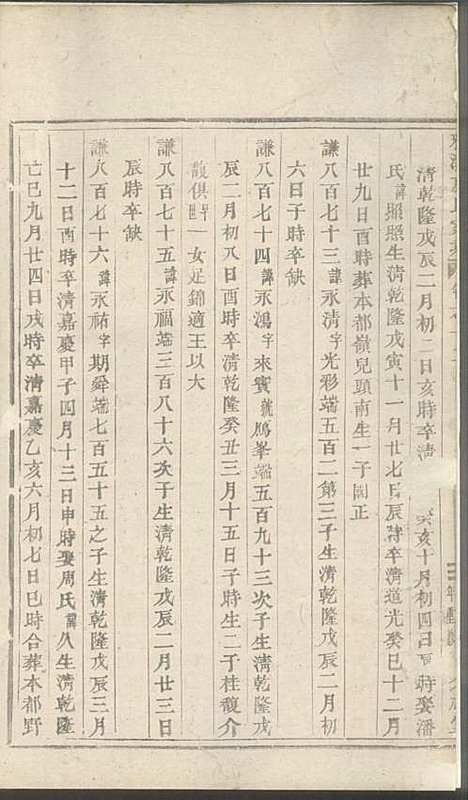 清乾隆戊辰二月初二日亥時卒清 癸亥十月初四日 時娶潘
氏諱照照生清乾隆戊寅十一月廿七日辰時卒清道光癸巳十二月
廿九日酉時葬本都嶺兒頭南生一子國正
謙八百七十三諱永清字光彩端五百二第三子生清乾隆戊辰二月初
六日子時卒缺
謙八百七十四諱永鴻字來賓號鴈峯端五百九十三次子生清乾隆戊
辰二月初八日酉時卒清乾隆癸丑三月十五日子時生二子桂馥介
馥俱早世一女足錦適王以大
謙八百七十五諱永福端三百八十六次子生清乾隆戊辰二月廿三日
辰時卒缺
謙八百七十六諱永祐字期舜端七百五十五之子生清乾隆戊辰三月
十二日酉時卒清嘉慶甲子四月十三日申時娶周氏諱久生清乾隆
亡巳九月廿四日戌時卒清嘉慶乙亥六月初七日巳時合葬本都野